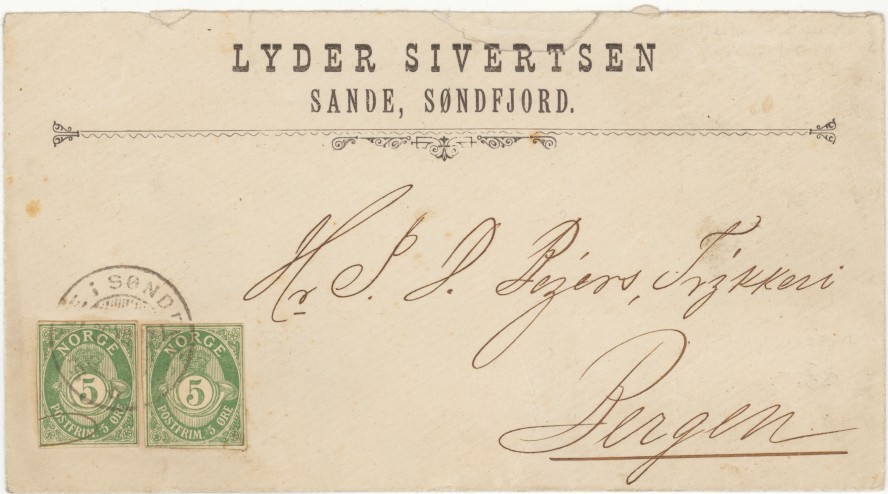 LYDER SIVERTSEN
SANDE, SØNDFJORD.
Hr J. D. Bejers, Trykkeri
Bergen
I SØNDF
NORGE
5
POSTFRIM. 5 ØRE
NORGE
5
POSTFRIM. 5 ØRE